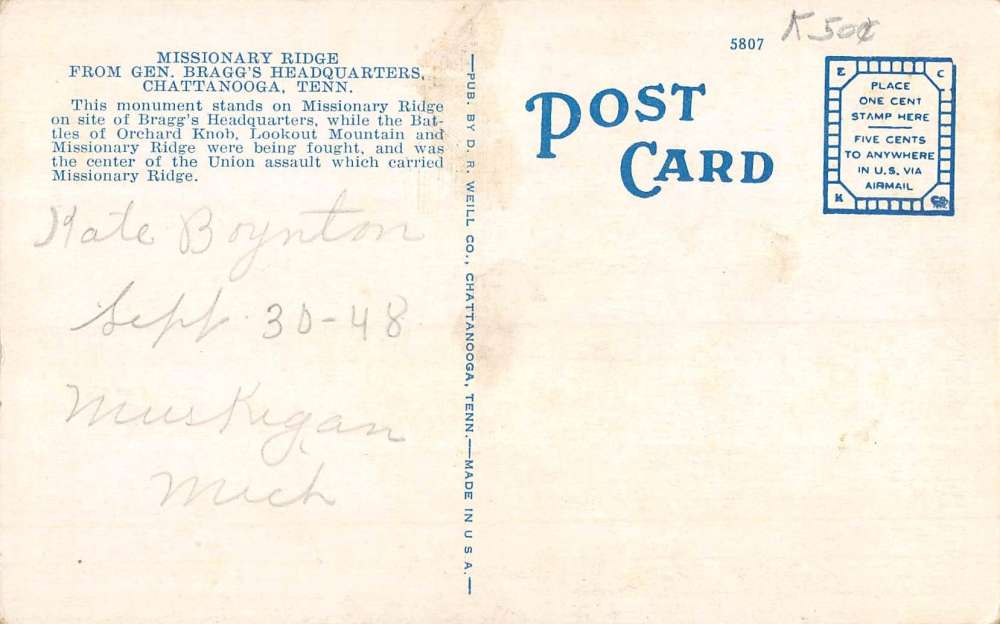 MISSIONARY RIDGE
FROM GEN. BRAGG'S HEADQUARTERS,
CHATTANOOGA, TENN.
This monument stands on Missionary Ridge
on site of Bragg's Headquarters, while the Bat-
tles of Orchard Knob, Lookout Mountain and
Missionary Ridge were being fought, and was
the center of the Union assault which carried
Missionary Ridge.
Kate Boynton
Sept. 30-48
Muskegan
Mich
—PUB. BY D. R. WEILL CO., CHATTANOOGA, TENN.—MADE IN U S A.—
5807
K 50¢
POST
CARD
E C
PLACE
ONE CENT
STAMP HERE
FIVE CENTS
TO ANYWHERE
IN U.S. VIA
AIRMAIL
K